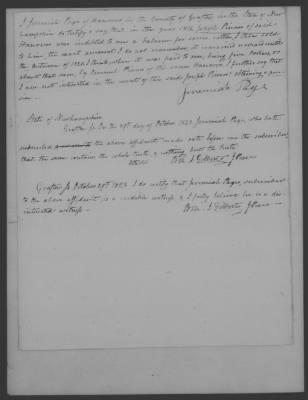 I Jeremiah Page of Hanover in the County of Grafton in the State of New
hampshire do testify & say that in the year 1816 Joseph Pinneo of said
Hanover was indebted to me a balance for some cattle I then sold
to him, the exact amount I do not remember, it remained unpaid untill
the Autumn of 1820 I think when it was paid to me, being five Dollars, or
about that sum, by Pinneo of the same Hanover I further say that
I am not interested in the event of this said Joseph Pinneo's obtaining a pen
sion
Jeremiah Page
State of Newhampshire
Grafton ss. On the 29th day of October 1823 Jeremiah Page, who hath
subscribed the above affidavit made oath before me the subscriber
that the same contains the whole truth, & nothing but the truth
Attest J Peace
Grafton ss October 29th 1823. I do certify that Jeremiah Page, subscriber
to the above affidavit, is a credible witness, & I fully believe he is a dis-
interested witness
J Peace